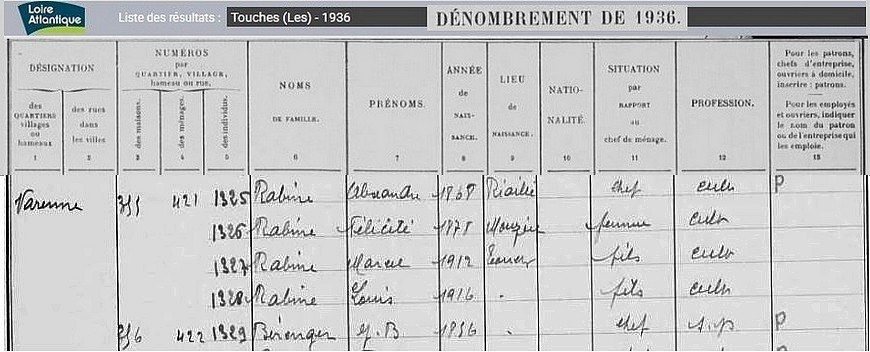 Loire Atlantique
Liste des résultats : Touches (Les) - 1936
DÉNOMBREMENT DE 1936.
DÉSIGNATION
des QUARTIERS villages ou hameaux
1
des rues dans les villes
2
NUMÉROS par QUARTIER, VILLAGE, hameau ou rue.
des maisons.
3
des ménages.
4
des individus.
5
NOMS DE FAMILLE.
6
PRÉNOMS.
7
ANNÉE de NAIS- SANCE.
8
LIEU de NAISSANCE.
9
NATIO- NALITÉ.
10
SITUATION par RAPPORT au chef de ménage.
11
PROFESSION.
12
Pour les patrons, chefs d'entreprise, ouvriers à domicile, inscrire : patrons.
Pour les employés et ouvriers, indiquer le nom du patron ou de l'entreprise qui les emploie.
13
Varenne 355 421 1325 Rabine Alexandre 1868 Riaillé chef cult P
1326 Rabine Félicité 1875 femme cult
1327 Rabine Marcel 1912 fils cult
1328 Rabine Louis 1916 fils cult
356 422 1329 Bérenger J.B 1856 chef s.p P